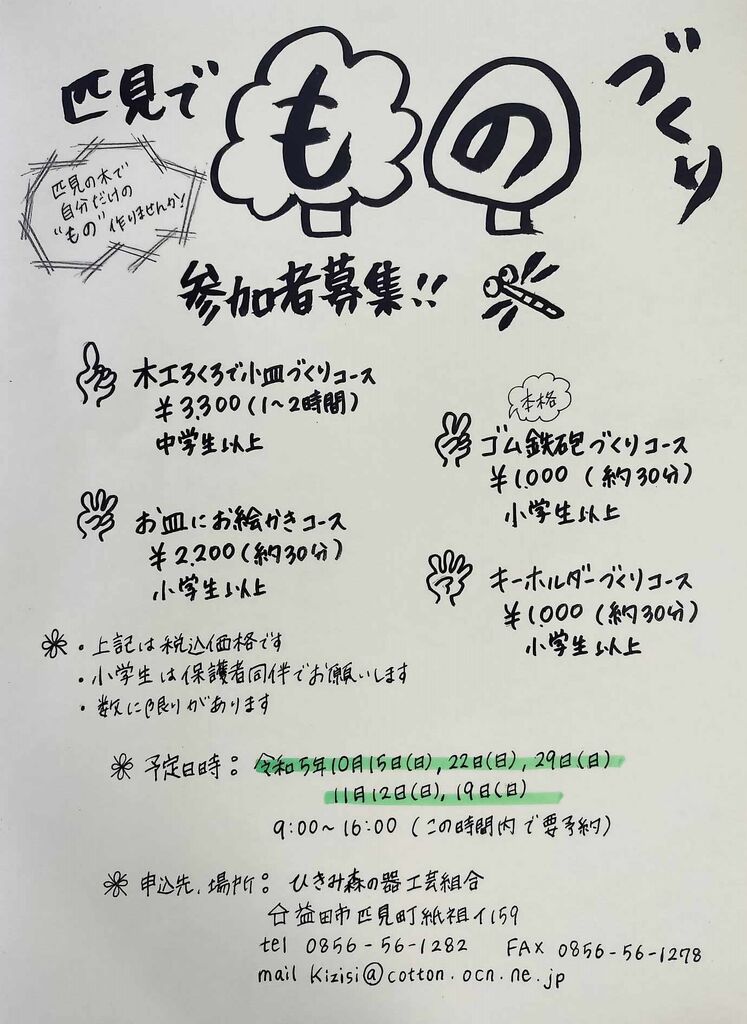 匹見でものづくり
匹見の木で
自分だけの
"もの"作りませんか!
参加者募集!!
木工ろくろで小皿づくりコース
¥3,300(1〜2時間)
中学生以上
本格
ゴム鉄砲づくりコース
¥1,000(約30分)
小学生以上
お皿にお絵かきコース
¥2,200(約30分)
小学生以上
キーホルダーづくりコース
¥1,000(約30分)
小学生以上
・上記は税込価格です
・小学生は保護者同伴でお願いします
・数に限りがあります
予定日時:令和5年10月15日(日),22日(日),29日(日)
11月12日(日),19日(日)
9:00〜16:00(この時間内で要予約)
申込先、場所:ひきみ森の器工芸組合
益田市匹見町紙祖イ159
tel 0856-56-1282 FAX 0856-56-1278
mail Kizisi@cotton.ocn.ne.jp